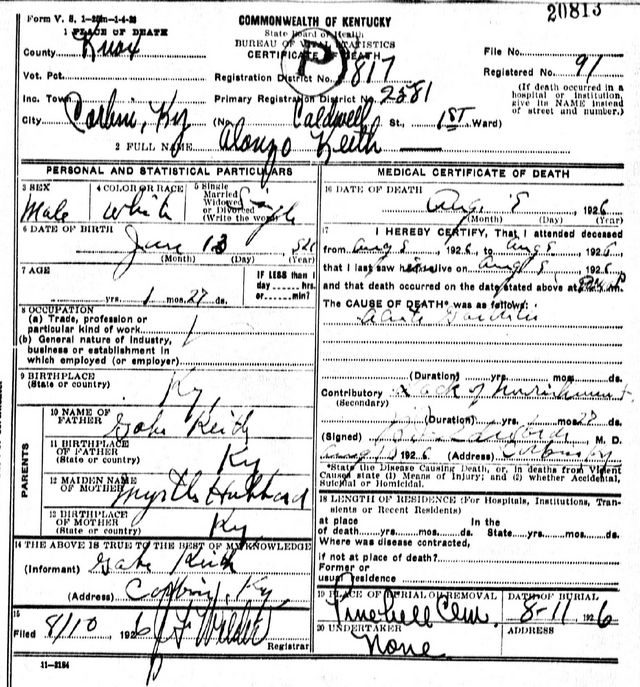 20813
Form V. S. 1-20m-1-4-26
COMMONWEALTH OF KENTUCKY
State Board of Health
BUREAU OF VITAL STATISTICS
CERTIFICATE OF DEATH
1 PLACE OF DEATH
County Knox
File No.
Vot. Pct.
Registration District No. 817
Registered No. 91
Inc. Town
Primary Registration District No. 2381
(If death occurred in a hospital or institution, give its NAME instead of street and number.)
City Corbin, Ky (No. Caldwell St., 1ST Ward)
2 FULL NAME Alonzo Keith
P
PERSONAL AND STATISTICAL PARTICULARS
3 SEX
Male
4 COLOR OR RACE
White
5 Single
Married
Widowed
or Divorced
(Write the word)
Single
6 DATE OF BIRTH
June 13
(Month) (Day) (Year)
7 AGE
yrs. 1 mos. 27 ds.
IF LESS than 1
day hrs.
or min.?
8 OCCUPATION
(a) Trade, profession or
particular kind of work
(b) General nature of industry,
business or establishment in
which employed (or employer)
9 BIRTHPLACE
(State or country) Ky.
PARENTS
10 NAME OF
FATHER Gabe Keith
11 BIRTHPLACE
OF FATHER
(State or country) Ky
12 MAIDEN NAME
OF MOTHER Myrtle Hubbard
13 BIRTHPLACE
OF MOTHER
(State or country) Ky
14 THE ABOVE IS TRUE TO THE BEST OF MY KNOWLEDGE
(Informant) Gabe Keith
(Address) Corbin, Ky
15
Filed 8/10 1926
Registrar
11-3184
MEDICAL CERTIFICATE OF DEATH
16 DATE OF DEATH
Aug. 8, 1926
(Month) (Day) (Year)
17 I HEREBY CERTIFY, That I attended deceased
from Aug 8, 1926, to Aug 8, 1926,
that I last saw him alive on Aug 8, 1926
and that death occurred on the date stated above at M
The CAUSE OF DEATH* was as follows:
Acute
(Duration) yrs. mos. ds.
Contributory Lack of Nourishment
(Secondary)
(Duration) yrs. 1 mos. 27 ds.
(Signed) M. D.
Aug 10 1926 (Address) Corbin Ky
*State the Disease Causing Death, or, in deaths from Violent
Causes state (1) Means of Injury; and (2) whether Accidental,
Suicidal or Homicidal.
18 LENGTH OF RESIDENCE (For Hospitals, Institutions, Tran-
sients or Recent Residents)
at place In the
of death yrs. mos. ds. State yrs. mos. ds.
Where was disease contracted,
if not at place of death?
Former or
usual residence
19 PLACE OF BURIAL OR REMOVAL
Pinehill Cem.
DATE OF BURIAL
8-11 1926
20 UNDERTAKER
None
ADDRESS